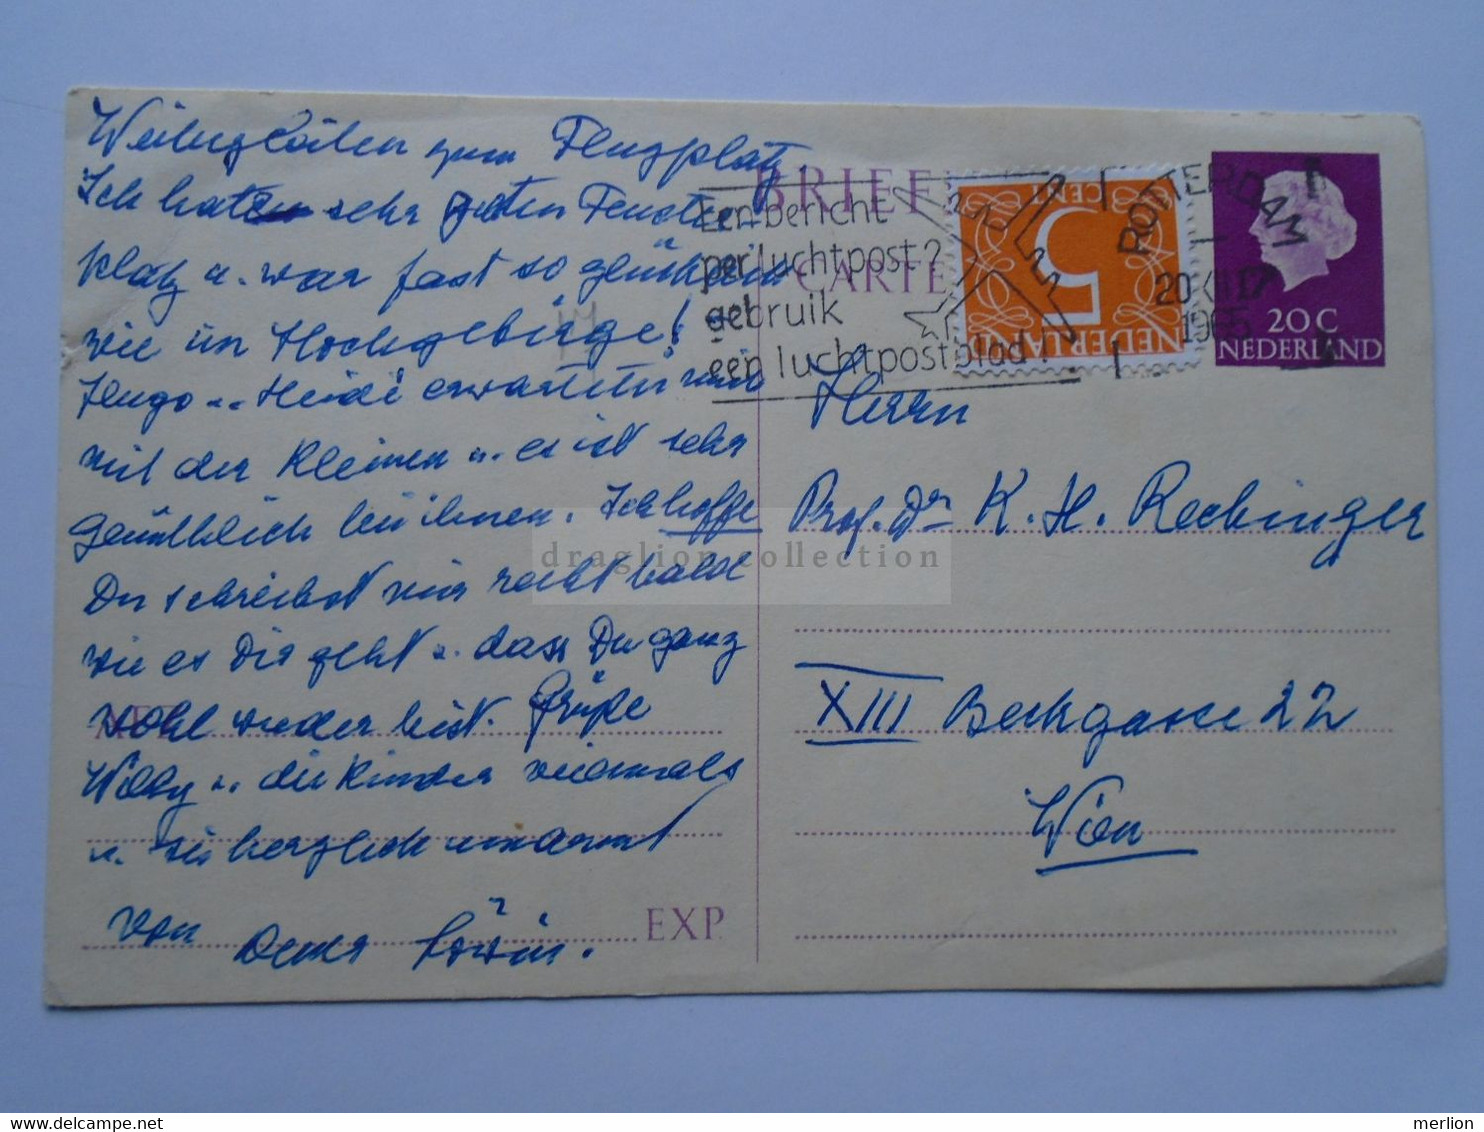 zum Flugplatz.
Ich hatte sehr guten Fenster
platz u. war fast so glücklich
wie im Hochgebirge!
Hugo u. Heidi erwarteten mich
mit der Kleinen u. es ist sehr
gemütlich bei ihnen. Ich hoffe
Du schreibst mir recht bald
wie es Dir geht u. dass Du ganz
wohl wieder bist. Grüße
Willy u. die Kinder vielmals
u. sei herzlich umarmt
von Deiner
EXP
BRIEF
CARTE
Een bericht
per luchtpost?
gebruik
een luchtpostblad!
5
CENT
NEDERLAND
ROTTERDAM
20 XII 17
1965
20 C
NEDERLAND
Herrn
Prof. Dr K. H. Rechinger
XIII Beckgasse 22
Wien
draglion collection
merlion